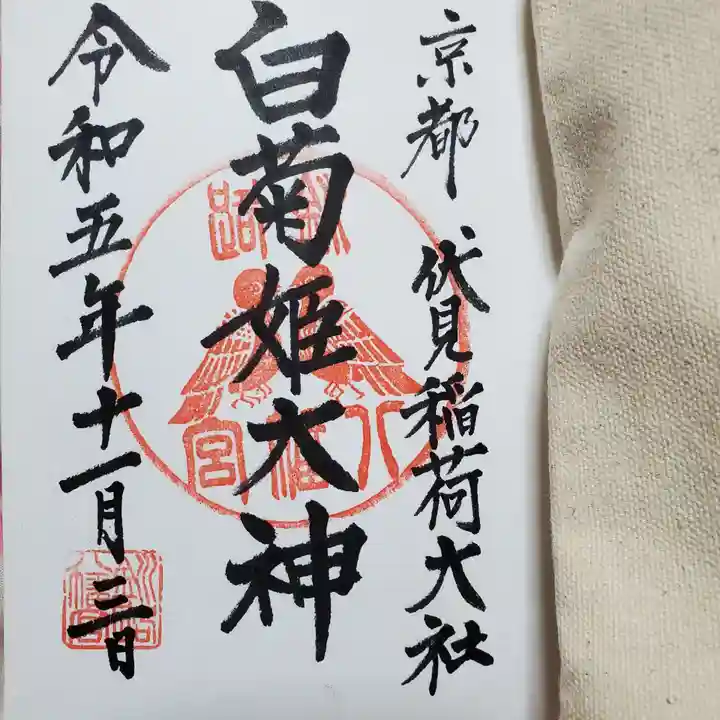 京都 伏見稲荷大社
白菊姫大神
令和五年十一月三日
八幡宮